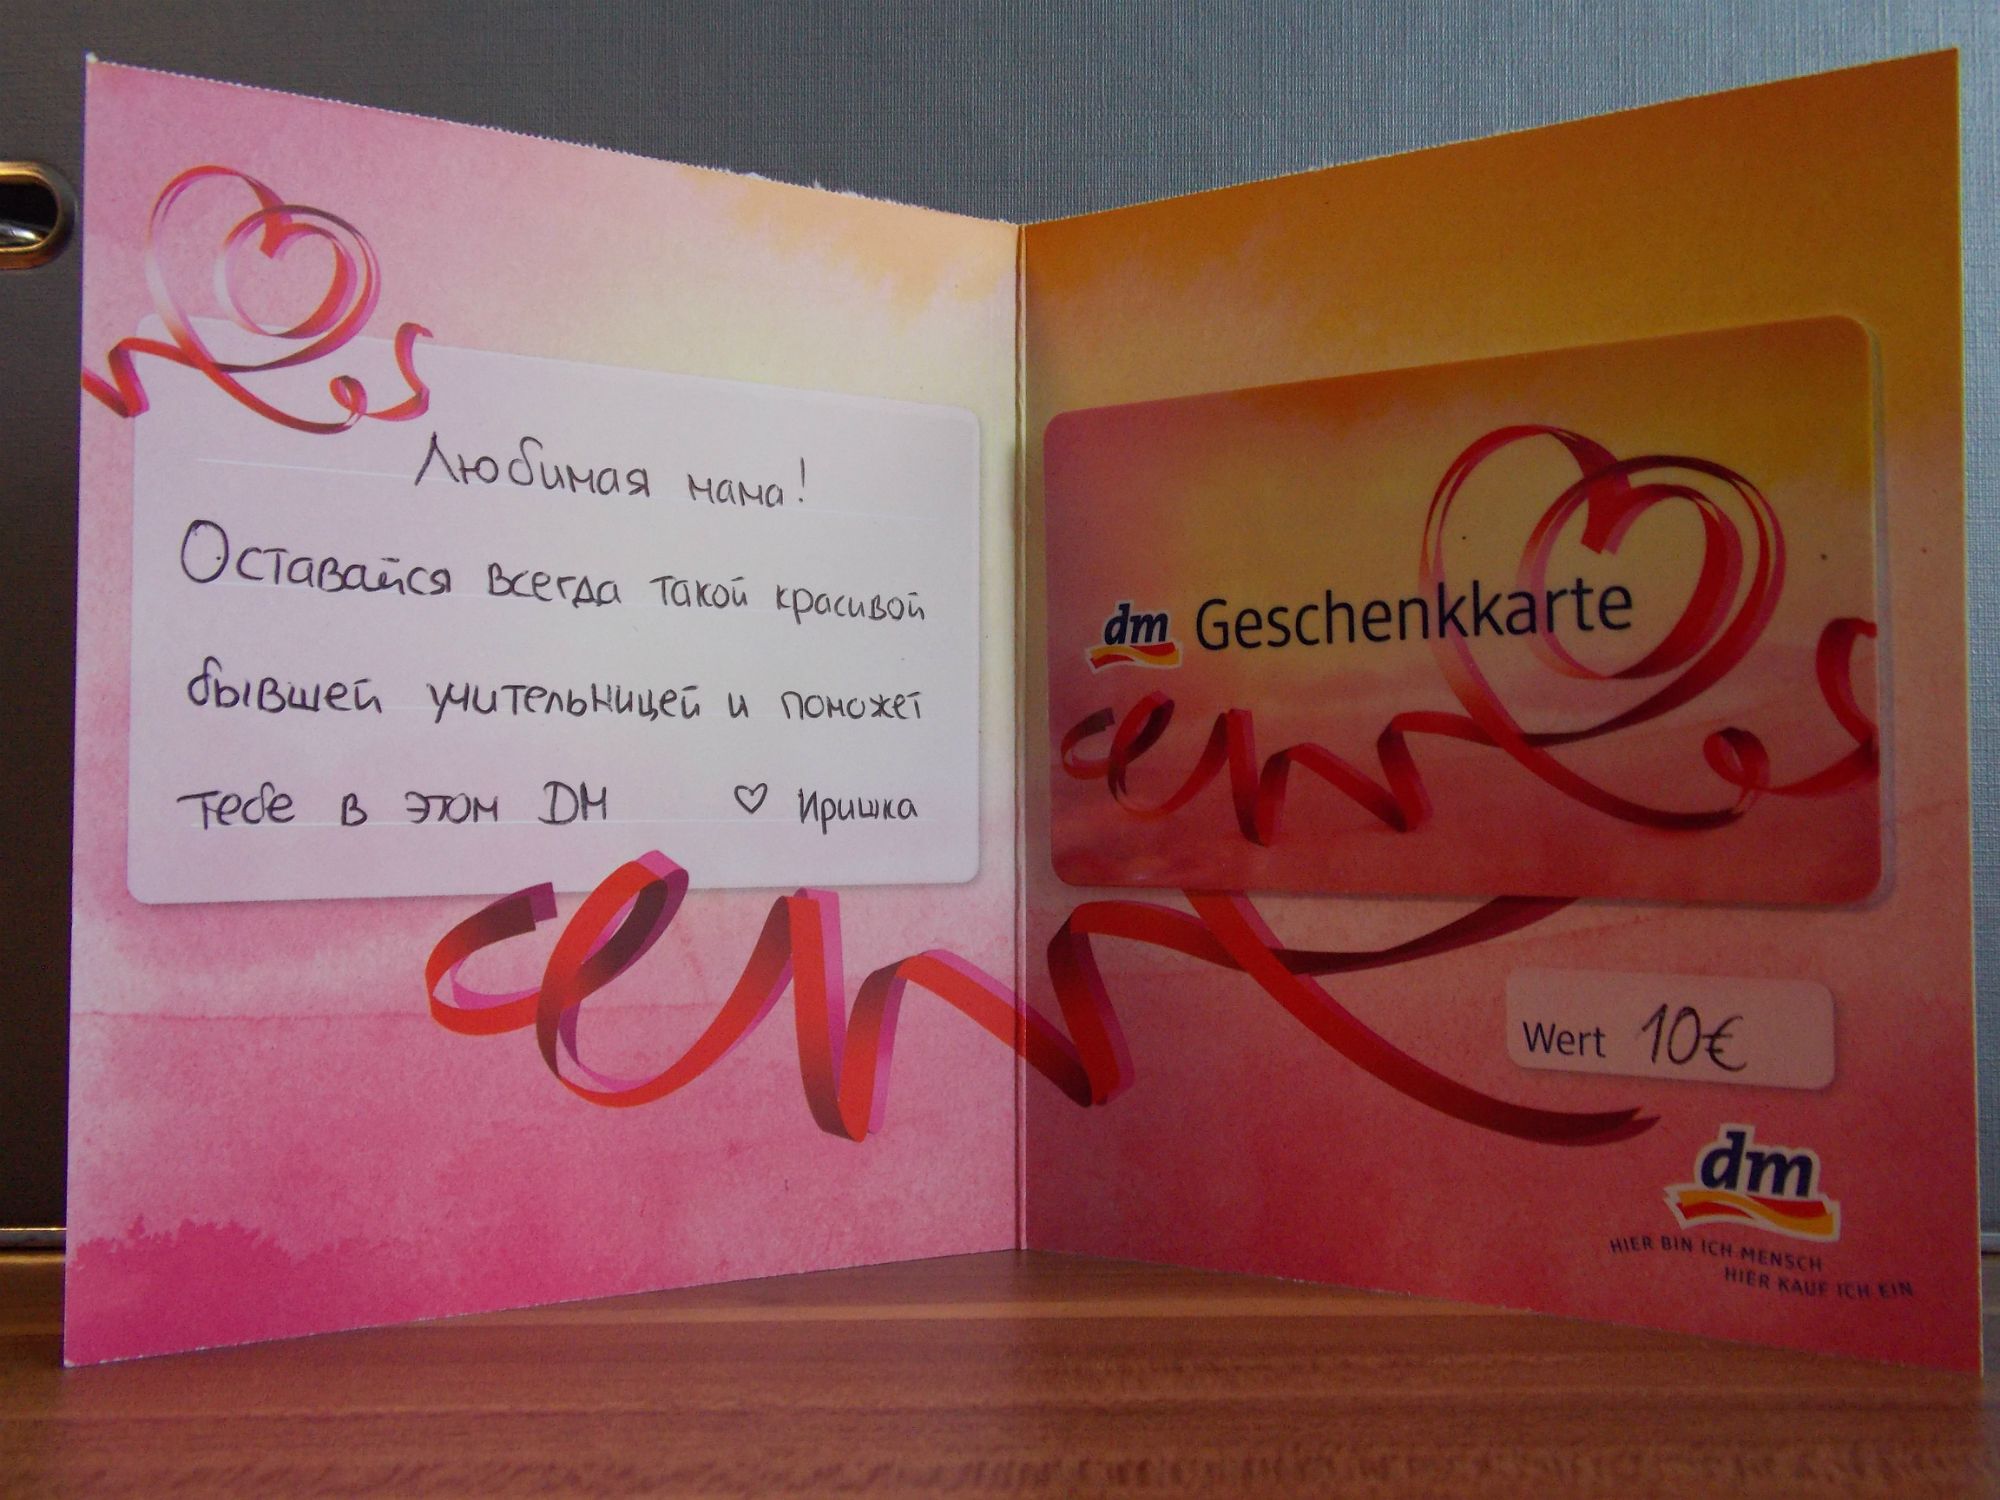 Любимая мама!
Оставайся всегда такой красивой
бывшей учительницей и поможет
тебе в этом DM ♡ Иришка
dm Geschenkkarte
Wert 10€
dm
HIER BIN ICH MENSCH
HIER KAUF ICH EIN